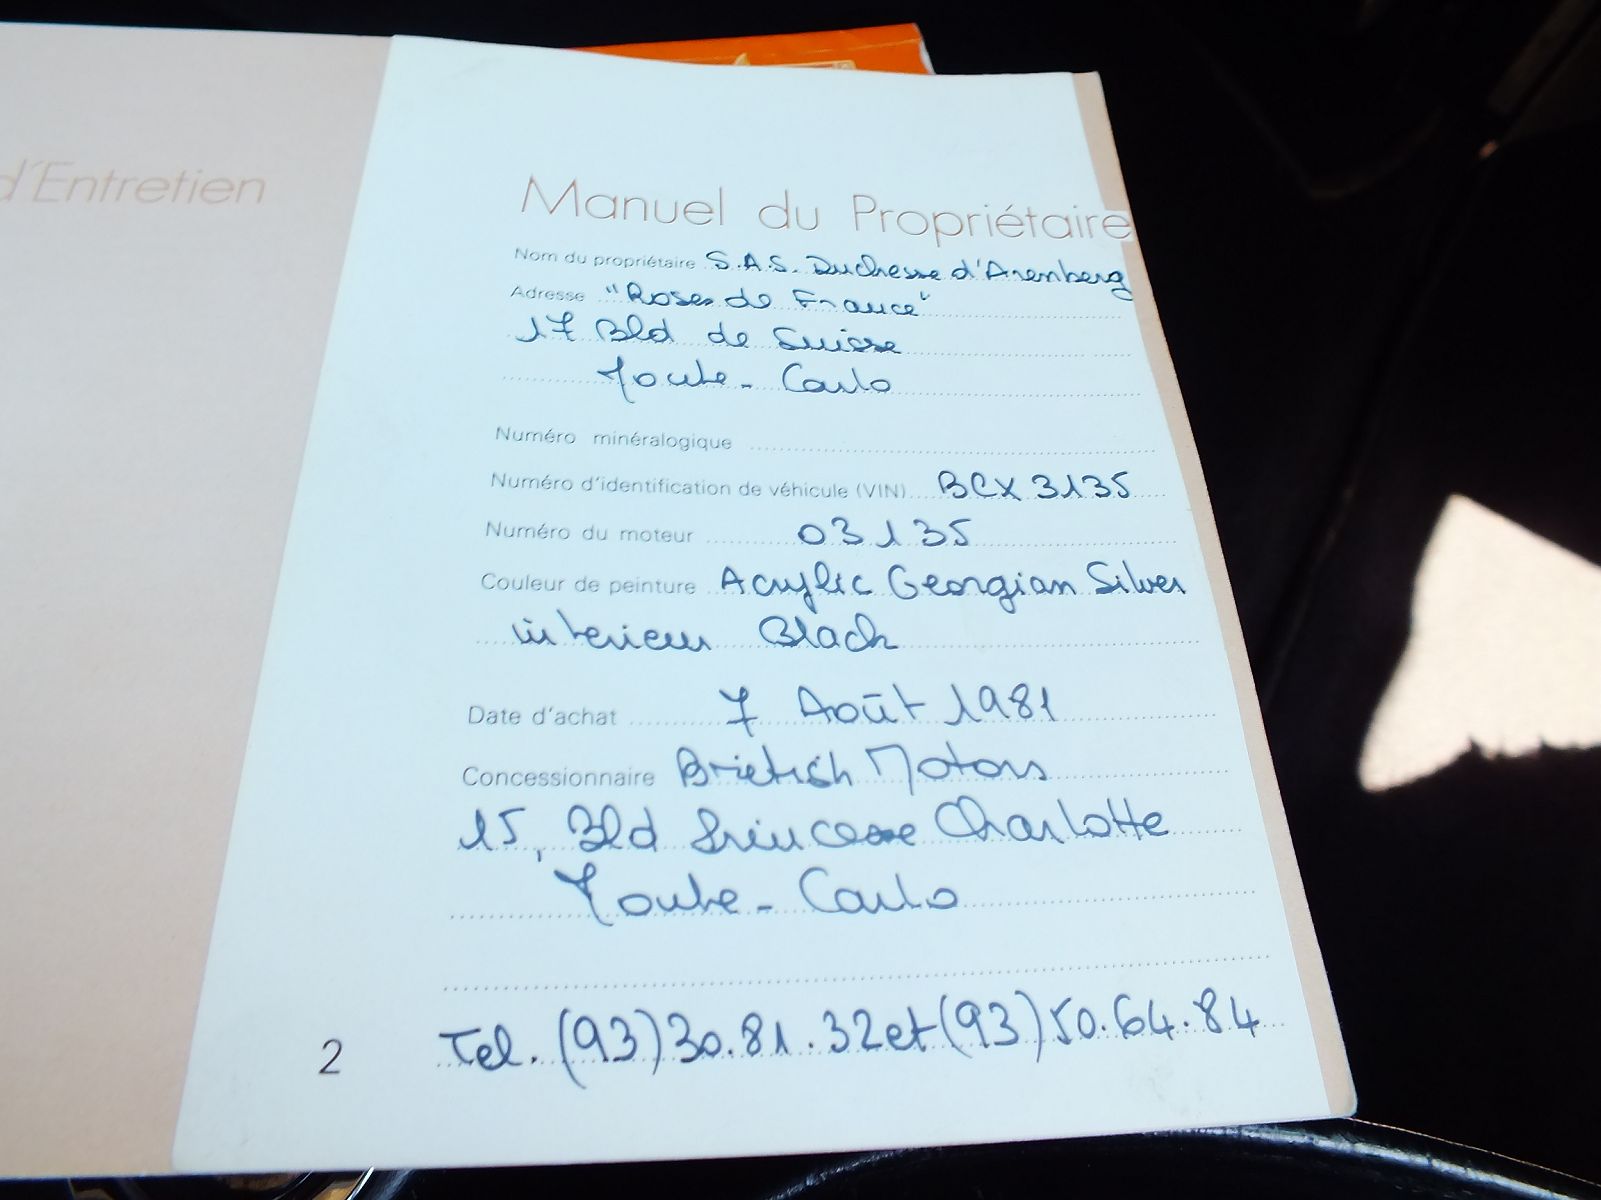 d'Entretien
Manuel du Propriétaire
Nom du propriétaire S.A.S. Duchesse d'Aremberg
Adresse "Roses de France"
17 Bld de Suisse
Monte-Carlo
Numéro minéralogique
Numéro d'identification de véhicule (VIN) BCX 3135
Numéro du moteur 03135
Couleur de peinture Acrylic Georgian Silver
interieur Black
Date d'achat 7 Août 1981
Concessionnaire Brietish Motors
15, Bld Princesse Charlotte
Monte-Carlo
2 Tel. (93) 30.81.32 et (93) 50.64.84